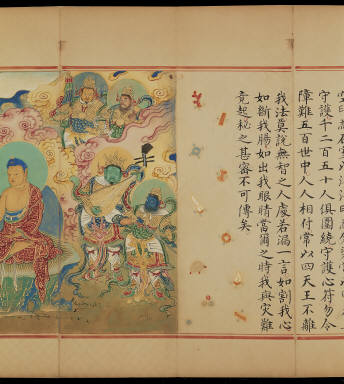 守護千二百五十人俱圍繞守護心符勿令
障難五百世中人人相付常以四天王不離
我法莫說無智之人處若漏一言如割我心
如斷我腸如出我眼睛當爾之時我與灾難
竟起秘之甚密不可傳矣